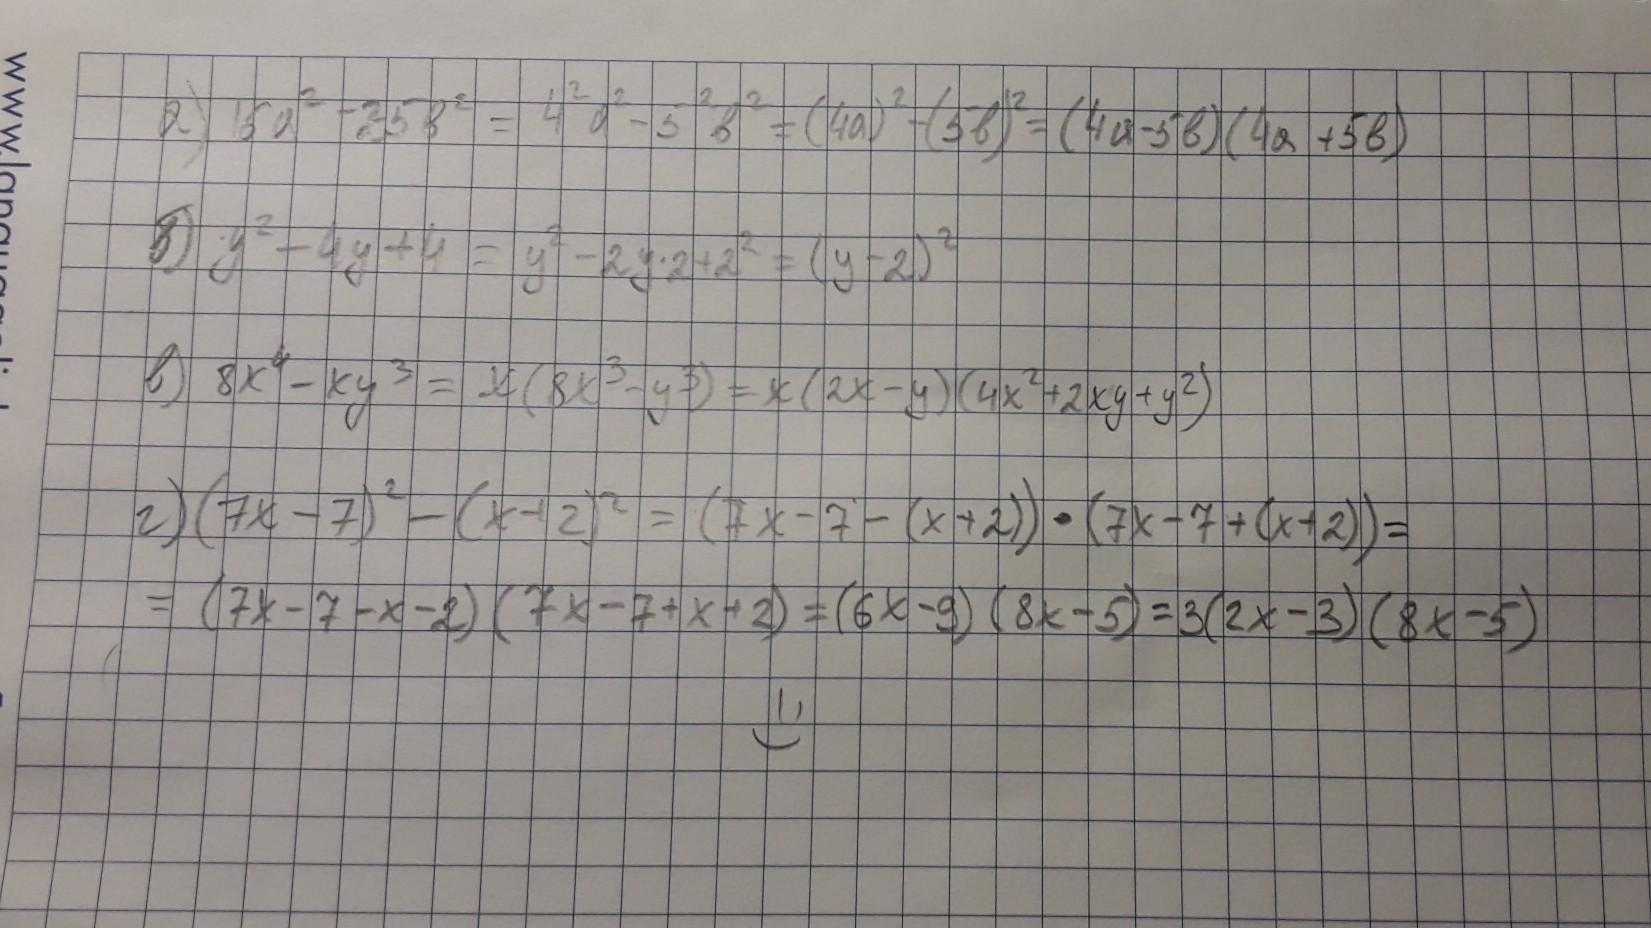 а) 16a² - 25b² = 4²a² - 5²b² = (4a)² - (5b)² = (4a-5b)(4a+5b)
б) y² - 4y + 4 = y² - 2y·2 + 2² = (y-2)²
в) 8x⁴ - xy³ = x(8x³ - y³) = x(2x-y)(4x²+2xy+y²)
г) (7x-7)² - (x+2)² = (7x-7-(x+2))·(7x-7+(x+2)) =
= (7x-7-x-2)(7x-7+x+2) = (6x-9)(8x-5) = 3(2x-3)(8x-5)